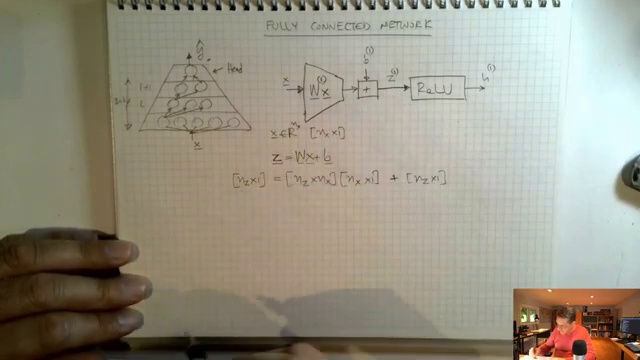 FULLY CONNECTED NETWORK
ŷ
Head
l+1
l
x
x
W^(1) x
b^(1)
+
z^(1)
ReLU
h^(1)
x ∈ R^(n_x) [n_x x 1]
z = Wx + b
[n_z x 1] = [n_z x n_x] [n_x x 1] + [n_z x 1]